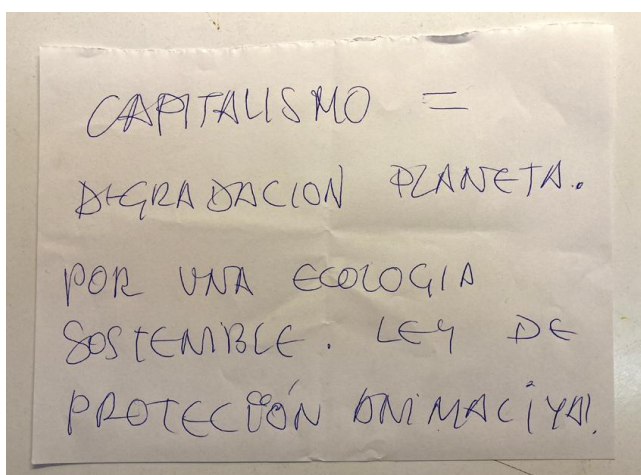 CAPITALISMO =
DEGRADACION PLANETA.
POR UNA ECOLOGIA
SOSTENIBLE. LEY DE
PROTECCIÓN ANIMAL ¡YA!